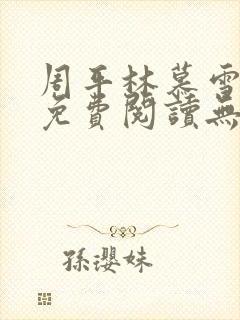 周平林慕雪
免費閱讀無
孫瓔妹